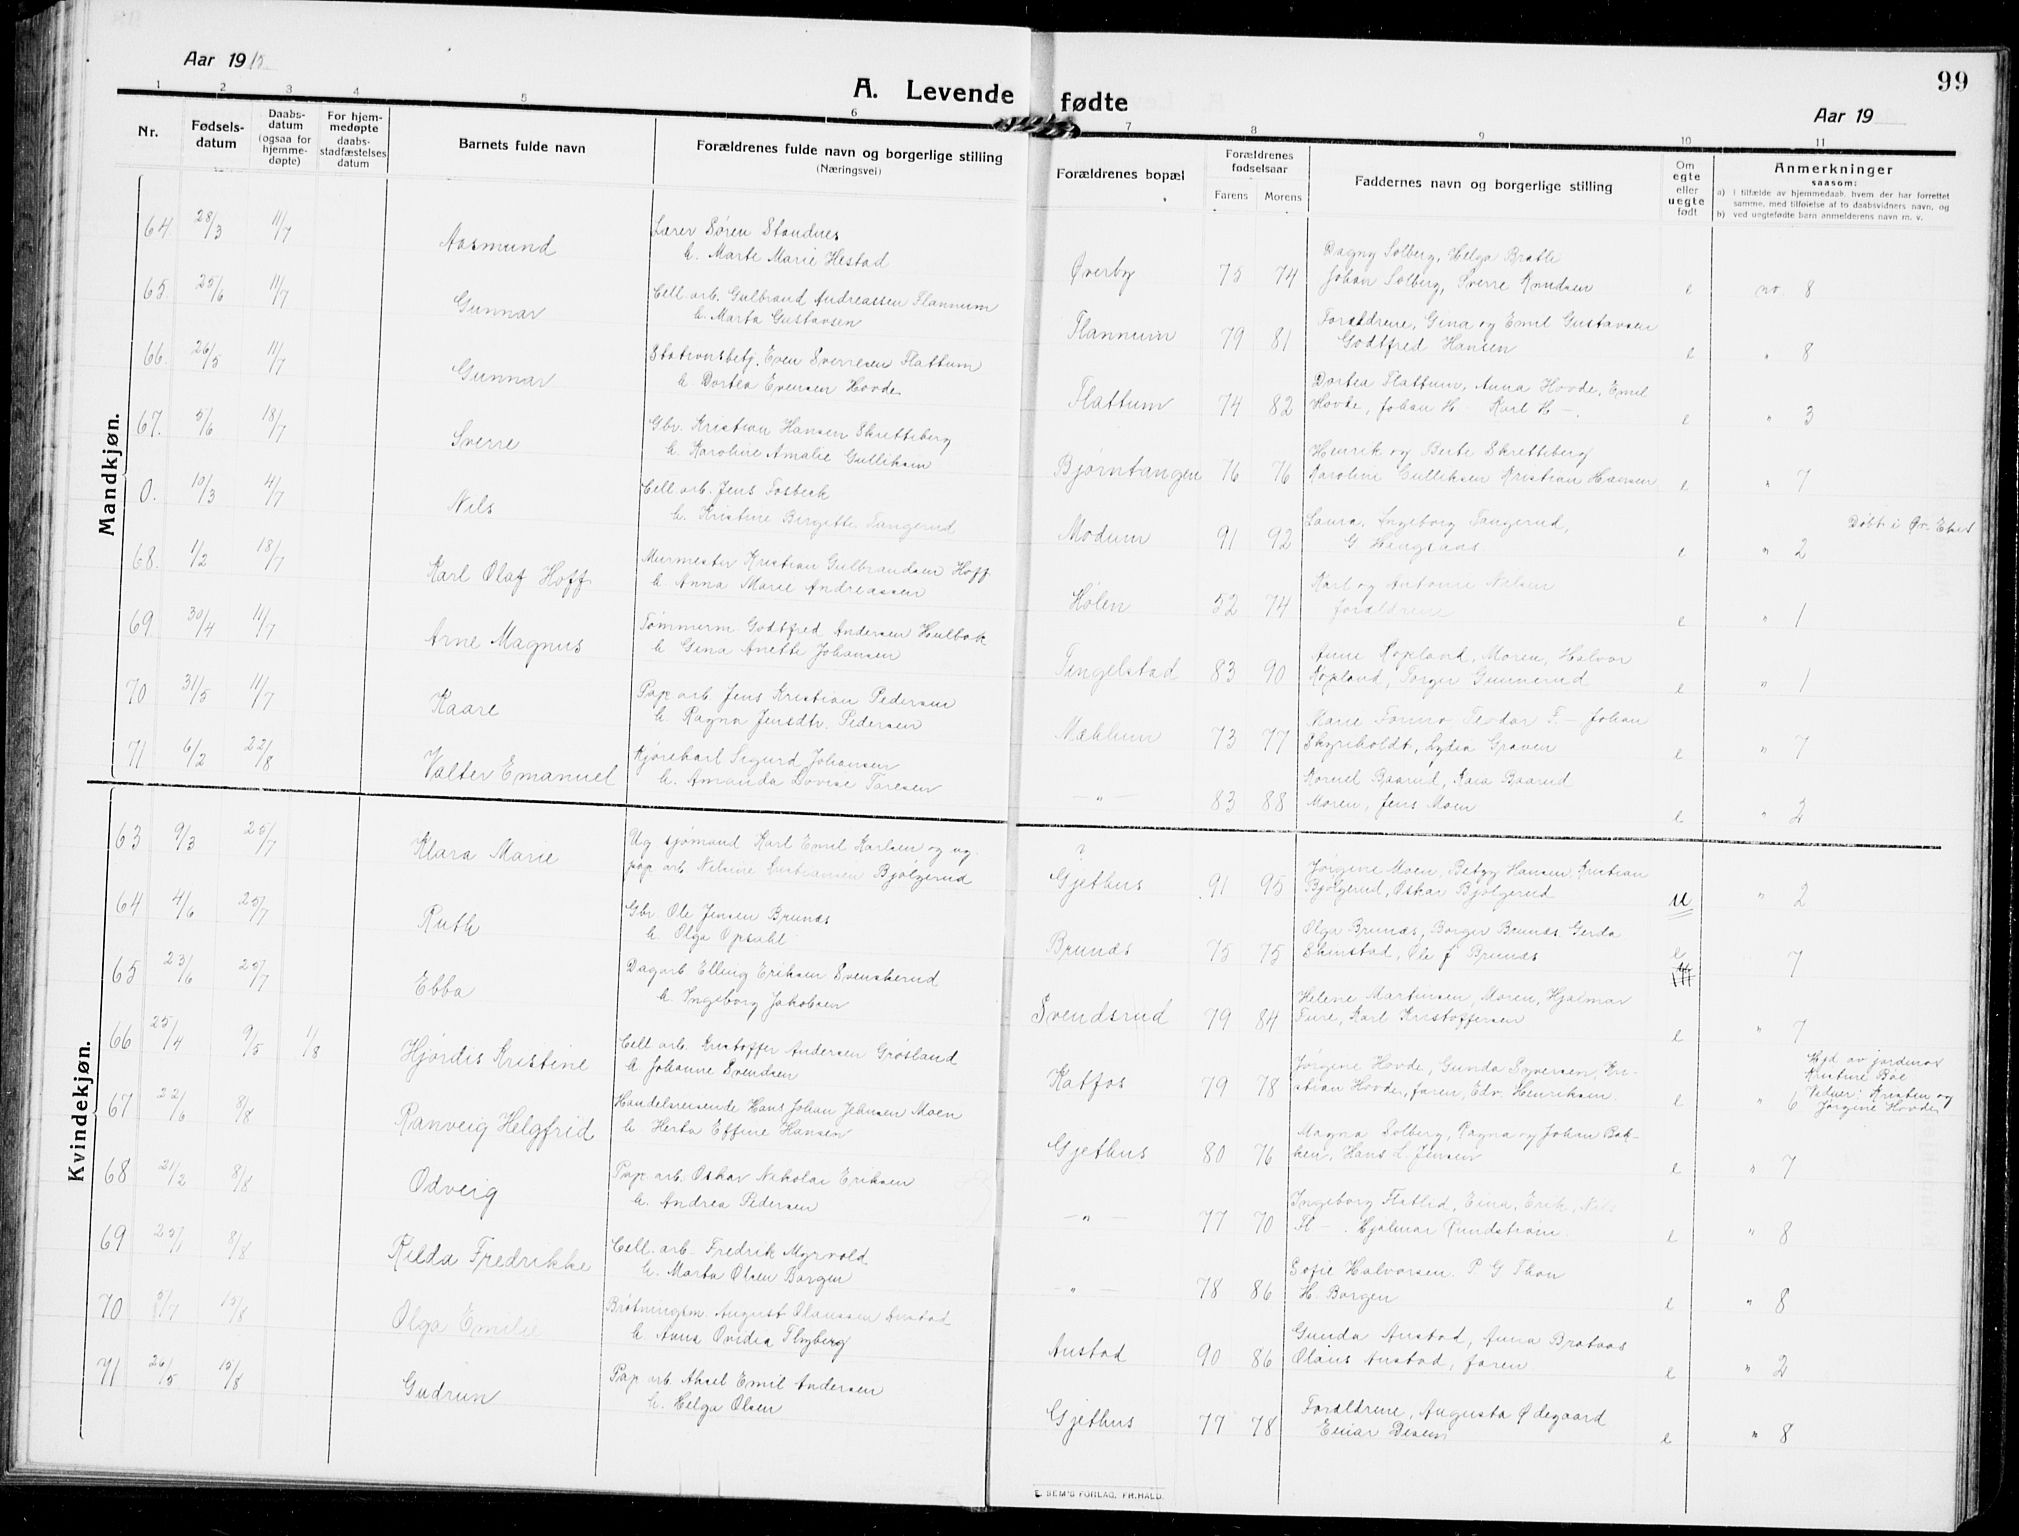 Aar 1915.
A. Levende fødte
99
Aar 19
1 2 3 4 5 6 7 8 9 10 11
Nr.
Fødsels-
datum
Daabs-
datum
(ogsaa for
hjemme-
døpte)
For hjem-
medøpte
daabs-
stadfæstelses
datum
Barnets fulde navn
Forældrenes fulde navn og borgerlige stilling
(Næringsvei)
Forældrenes bopæl
Forældrenes
fødselsaar
Farens Morens
Faddernes navn og borgerlige stilling
Om
egte
eller
uegte
født
Anmerkninger
saasom:
a) I tilfælde av hjemmedaab, hvem der har forrettet
samme, med tilføielse af to daabsvidners navn, og
b) ved uegtefødte barn anmelderens navn m. v.
Mandkjøn.
64. 28/3 11/7 Aasmund Lærer Søren Standnes
h. Marte Marie Hestad
Øverby 75 74 Dagny Solberg, Helga Bratli
Johan Solberg, Sverre Knudsen e no 8
65. 25/6 11/7 Gunnar Cell. arb. Gulbrand Andreassen Flannum
h. Marta Gustavsen
Flannum 79 81 Forældrene, Gina og Emil Gustavsen
Godtfred Hansen e " 8
66. 26/5 11/7 Gunnar Stationsbetj. Even Sverresen Flattum
h. Dortea Evensen Hovde
Flattum 74 82 Dortea Flattum, Anna Hovde, Emil
Hovde, Johan H - Karl H -. e " 3
67. 5/6 18/7 Sverre Gbr. Kristian Hansen Skretteberg
h. Karoline Amalie Gulliksen
Bjørntangen 76 76 Henrik og Berte Skretteberg
Karoline Gulliksen Kristian Hansen e " 7
0. 10/3 4/7 Nils Cell. arb. Jens Fosbæk
h. Kristine Bergitte Tangerud
Modum 91 92 Laura, Ingeborg Tangerud,
G Hengsaas e " 2 Døbt i Øv. Eker
68. 1/2 18/7 Karl Olaf Hoff Murmester Kristian Gulbrandsen Hoff
h. Anna Marie Andreassen
Holen 52 74 Karl og Antonie Nilsen
forældrene e " 1
69 30/4 11/7 Arne Magnus Tømmerm. Godtfred Andersen Hulbak
h. Gina Anette Johansen
Tingelstad 83 90 Anne Kopland, Moren, Halvor
Kopland, Torger Gunnerud e " 1
70 31/5 11/7 Kaare Pap. arb. Jens Kristian Pedersen
h. Ragna Jensdtr. Pedersen
Mælum 73 77 Marie Formo Teodor F. - Johan
Skyriholdt, Lydia Graven e " 7
71 6/2 22/8 Valter Emanuel Kjørekarl Sigurd Johansen
h. Amanda Lovise Taresen
- " - 83 88 Kornel Baarud, Kaia Baarud
Moren, Jens Moen e " 2
Kvindekjøn.
63 9/3 25/7 Klara Marie Ug sjømand Karl Emil Karlsen og ug.
pap. arb. Nelsine Kristiansen Bjølgerud
?
Gjethus 91 95 Jørgine Moen, Betzy Hansen, Kristian
Bjølgerud, Oskar Bjølgerud u " 2
64 4/6 25/7 Ruth Gbr. Ole Jensen Brunæs
h. Olga Opsahl
Brunæs 75 75 Olga Brunæs, Borger Brunæs Gerda
Skinstad, Ole J Brunæs e 7
65 23/6 25/7 Ebba Dagarb Elling Eriksen Svenskerud
h. Ingeborg Jakobsen
Svendsrud 79 84 Helene Martinsen, Moren, Hjalmar
Ture, Karl Kristoffersen e " 7
66 25/4 9/5 1/8 Hjørdis Kristine Cell. arb. Kristoffer Andersen Grøsland
h Johanne Svendsen
Katfos 79 78 Jørgine Hovde, Gunda Syversen, Kri-
stian Hovde, faren, Edv. Henriksen e " 6
Hjd av jordmor
Kristine Bøe
Vidner: Kristen og
Jørgine Hovde
67 22/6 8/8 Ranveig Helgfrid Handelsreisende Hans Johan Jensen Moen
h. Herta Effine Hansen
Gjethus 80 76 Magna Solberg, Ragna og Johan Bak-
ken, Hans L. Jensen e " 7
68 21/2 8/8 Odveig Pap. arb. Oskar Nikolai Eriksen
h. Andrea Pedersen
- " - 77 70 Ingeborg Flatlid, Eina, Erik, Nils
Fl - . Hjalmar Rundstrøm. e " 8
69 25/1 8/8 Rilda Fredrikke Cell. arb. Fredrik Myrvold
h. Marta Olsen Borgen
- " - 78 86 Sofie Halvorsen. P G Thon
H. Borgen e " 8
70 5/7 15/8 Olga Emilie Brøtningsm. August Olaussen Anstad
h. Anna Ovidia Thyberg
Anstad 90 86 Gunda Anstad, Anna Brataas
Olaus Anstad, faren e " 2
71 26/5 15/8 Gudrun Pap. arb. Aksel Emil Andersen
h. Helga Olsen
Gjethus 77 78 Forældrene, Augusta Ødegaard
Einar Desen e " 8
E. SEM'S FORLAG, FR.HALD.